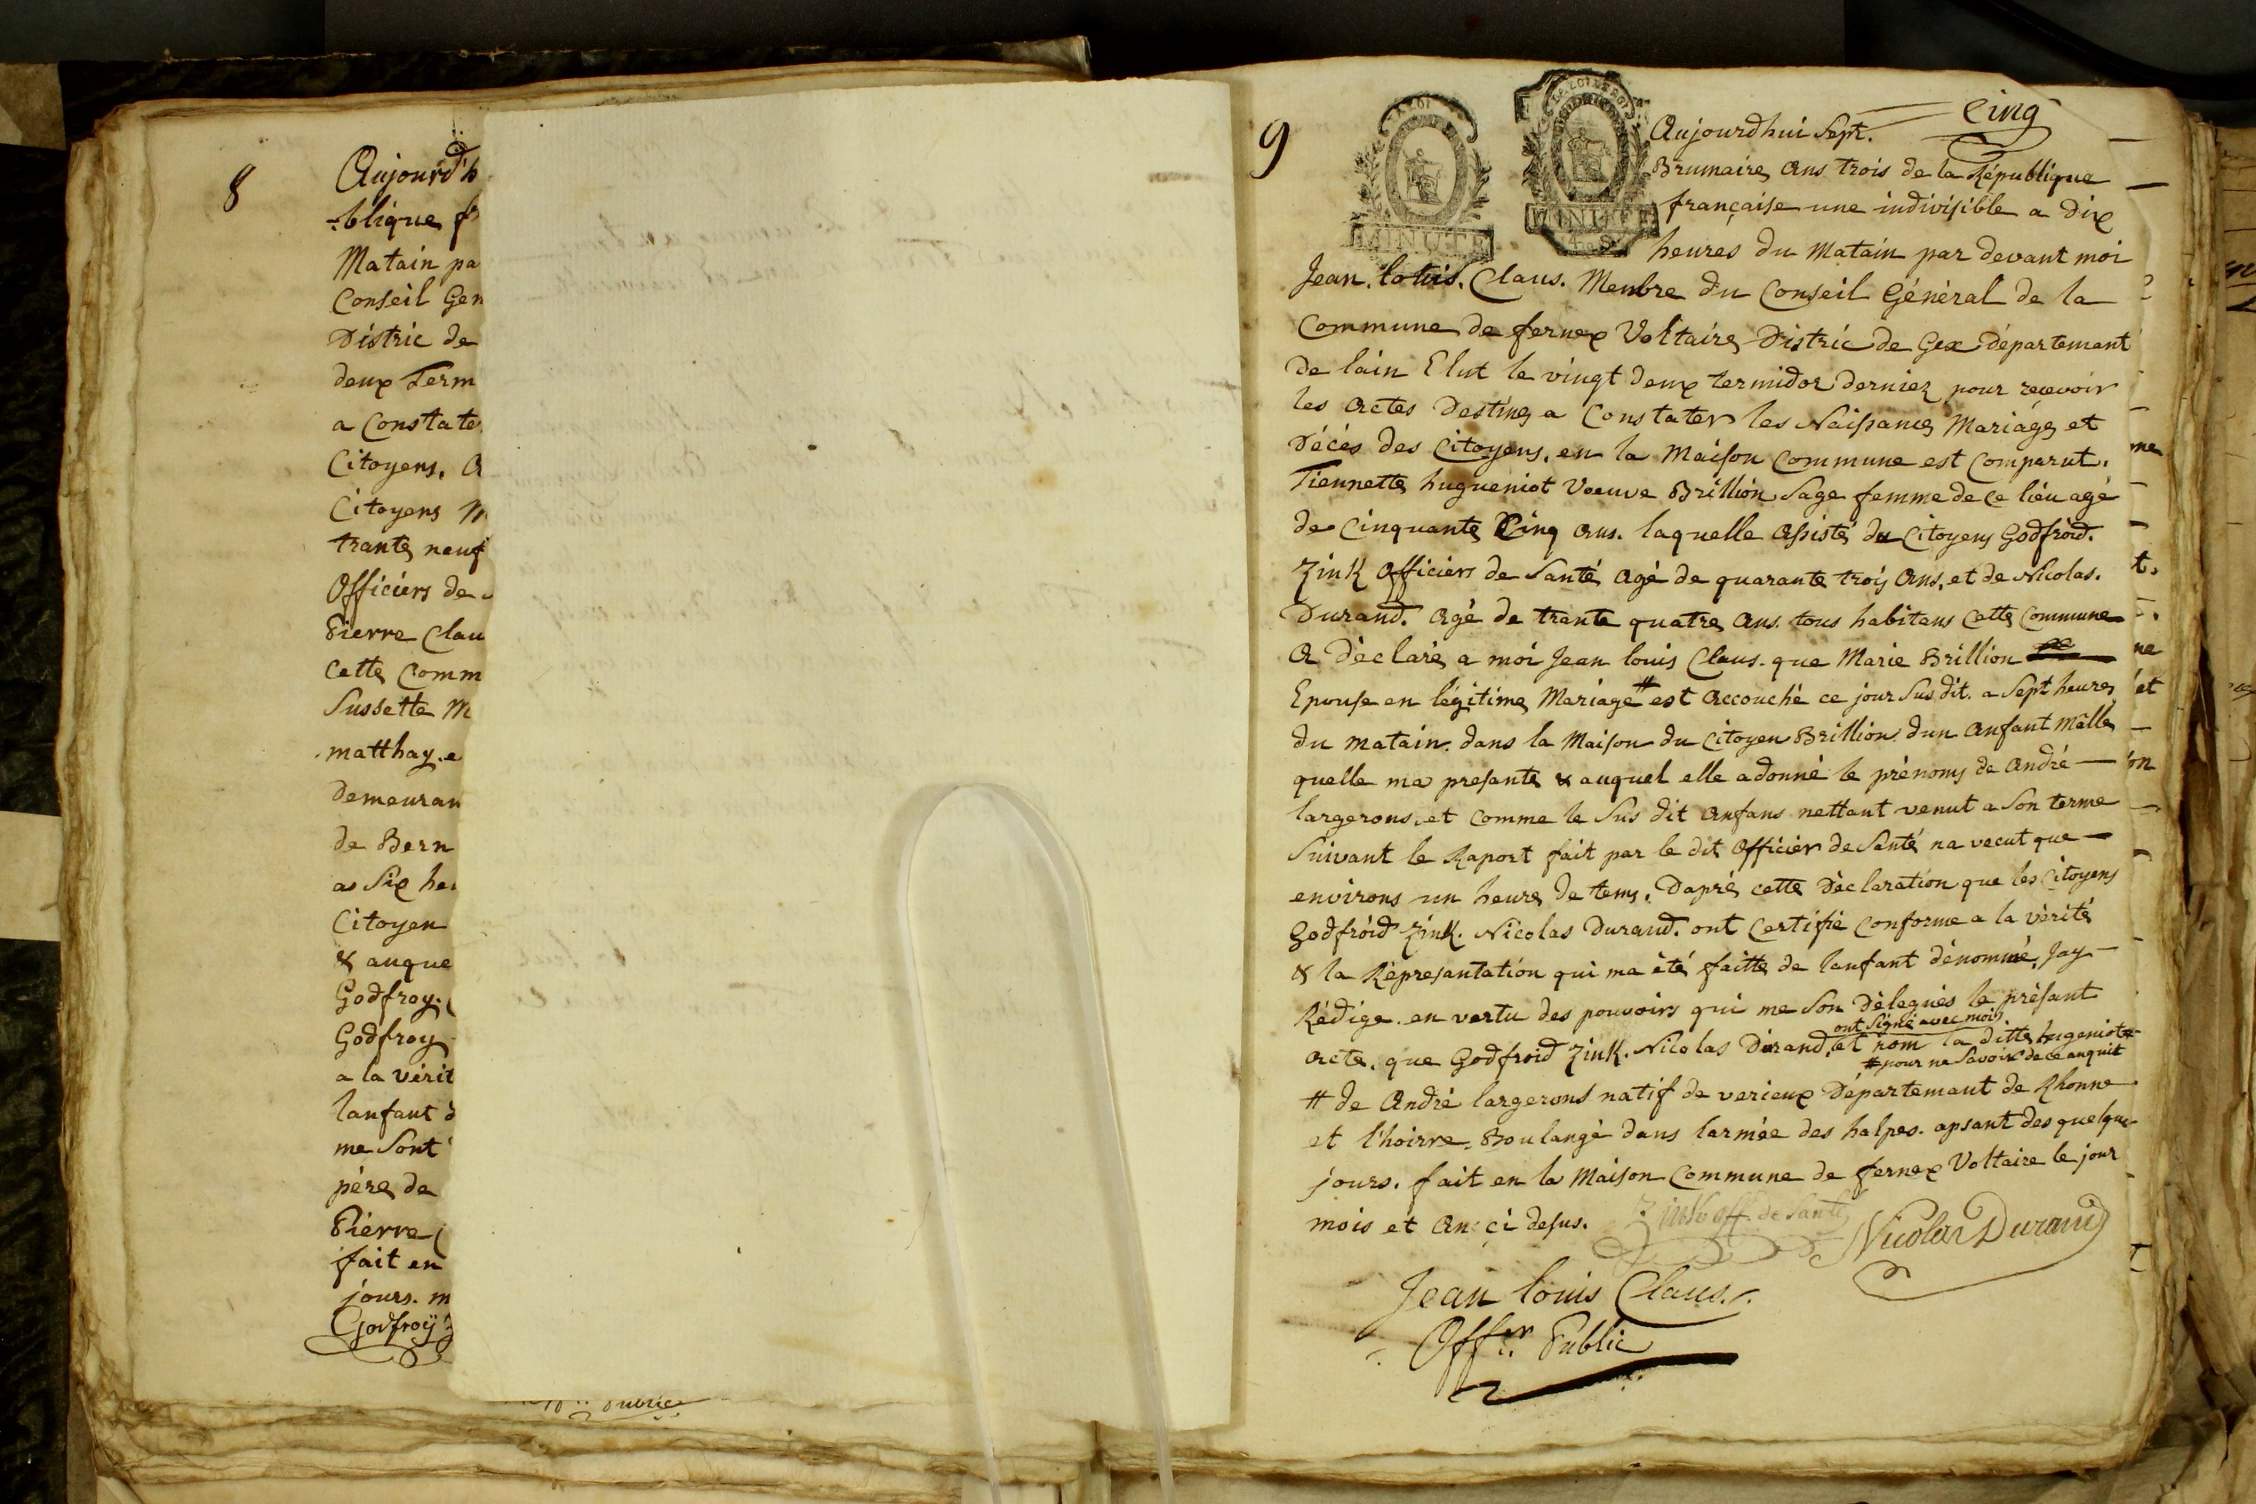 8
Aujourd'h
-blique fr
Matain pa
Conseil Gen
District de
deux Term
a Constate
Citoyens. a
Citoyens M
trante neuf
Officiers de
Pierre Clau
Cette Comm
Sussette M
matthay. e
demeuran
de Bern
as Six heu
Citoyen
& auque
Godfroy. (
Godfroy
a la vérit
lanfant d
me Sont
père de
Pierre (
fait en
jours. m
Godfroÿ Z
Public
9
LA LOI
MINUTE
LA LOI LE ROI
MINUTE
4 De S
Cinq
Aujourdhui Sept.
Brumaire Ans trois de la République
française une indivisible a dix
heures du Matain par devant moi
Jean. louis. Claus. Menbre du Conseil Général de la
Commune de fernex Voltaire Distric de Gex départemant
de lain Elut le vingt deux termidor dernier pour recevoir
les actes Destines a Constater les Naissances Mariages et
Décès des Citoyens. en la Maison Commune est Comparut.
Tiennette hugueniot Voeuve Brillion Sage femme de ce lieu agé
de Cinquante Cinq ans. laquelle assisté du Citoyens Godfroid.
Zink Officiers de Santé agé de quarante trois Ans. et de Nicolas.
Durand. agé de trante quatre Ans. tous habitans Cette Commune
a déclaré a moi Jean louis Claus. que Marie Brillion
Epouse en légitime Mariage # est accouché ce jour Sus dit. a Sept heures
du matain. dans la Maison du Citoyen Brillion dun anfant Mâlle
quelle ma presente & auquel elle a donné le prénoms de André —
largerons. et Comme le Sus dit anfans nettant venut a Son terme
Suivant le Raport fait par le dit Officier de Santé na vecut que —
environs un heure de tems. Daprés cette Déclaration que les Citoyens
Godfroid Zink. Nicolas Durand. ont Certifié Conforme a la vérité
& la Représantation qui ma été faitte de lanfant dénommé, Jay —
Rédige. en vertu des pouvoirs qui me Son Délegués le présant
ont Signé avec mois
acte. que Godfroid Zink. Nicolas Durand, et nom la ditte hugeniot #
# pour ne Savoir de ce anquit
# de André largerons natif de verieux Département de Rhonne
et l'hoirre. Boulangé dans larmée des halpes. apsant des quelque
jours. fait en la Maison Commune de fernex Voltaire le jour
mois et An: çi desus.
Zink off. de Santé
Nicolas Durand
Jean louis Claus.
Offer. Public